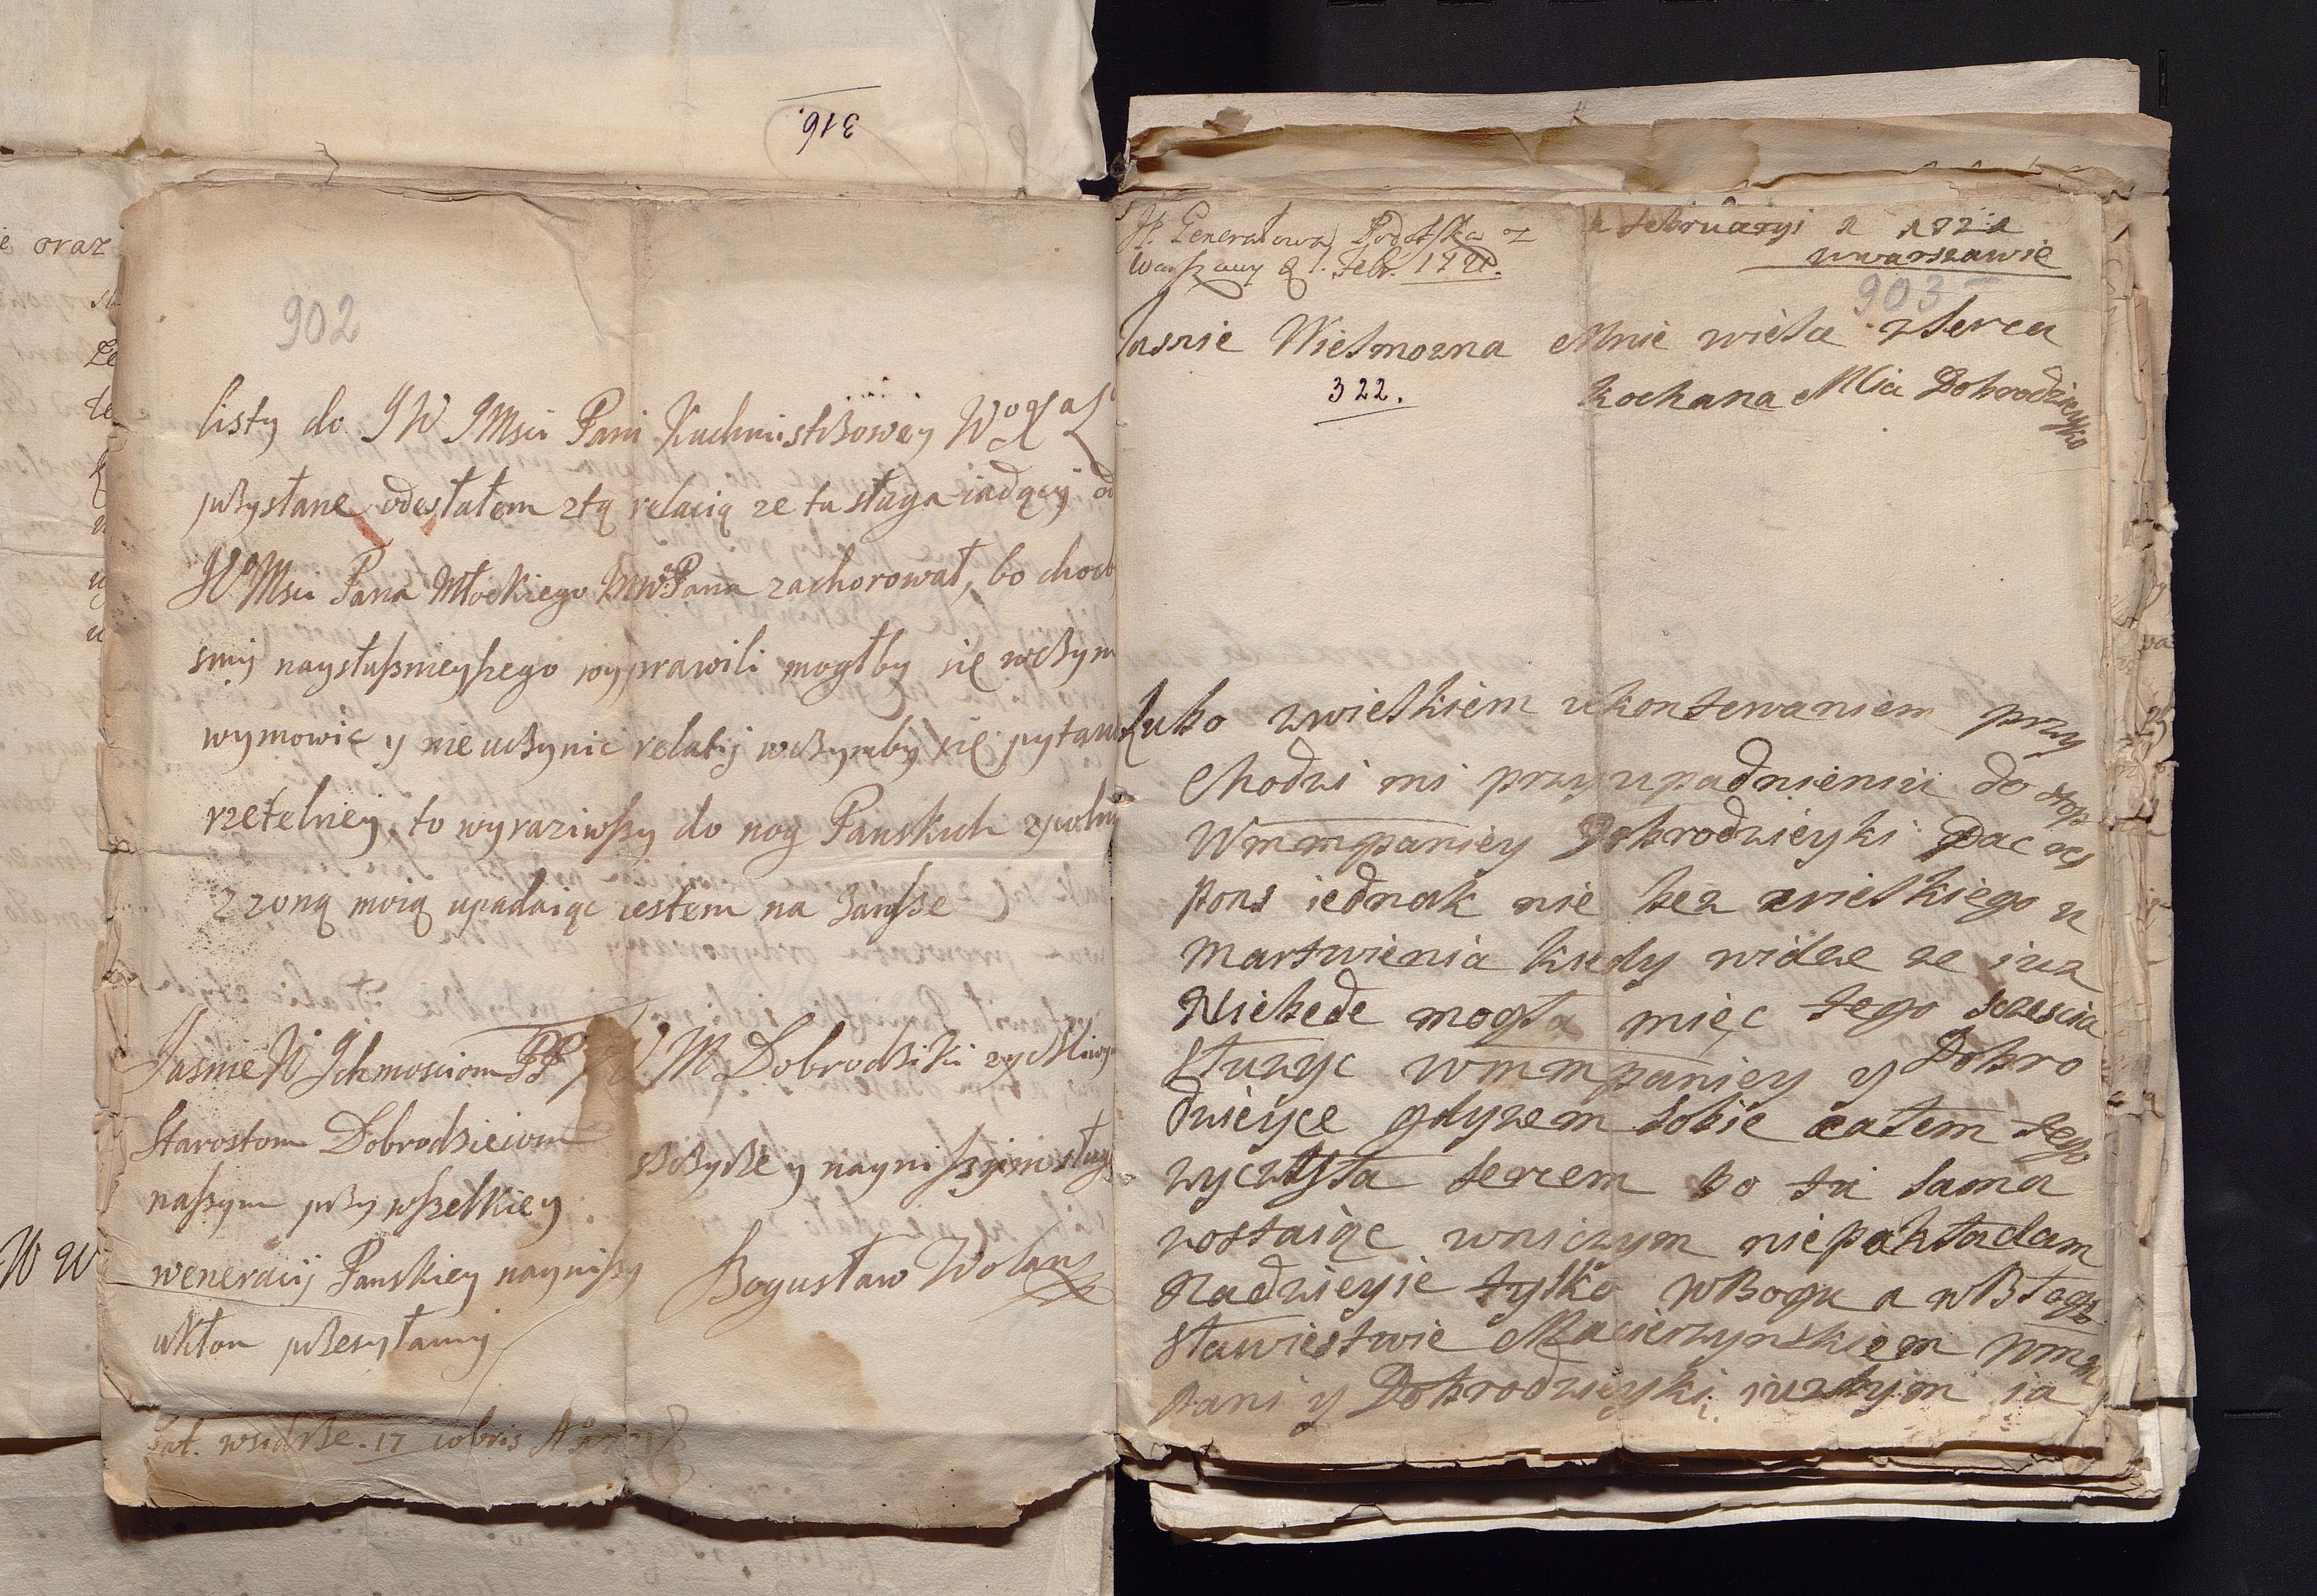 316.
e oraz
902
listy do JW JMsci Pani Kuchmistrzowey
przysłane odesłałem z tą relacią ze tu sługa iadący
JWMsci Pana Młockiego zachorował, bo choc
smy naysłusznieyszego wyprawili mogłby się w czym
wymowic y nie uczynic relatij w czymby się pytan
rzetelney, to wyraziwszy do nog Panskich
z zoną moią upadaiąc iestem na zawsze
Jasnie W Ichmosciom PP W M Dobrodziki zyczliwy
Starostom Dobrodzieiom y nayniszym sługą
naszym przy wszelkiey
weneracij Panskiey nayniszy Bogusław Wolan
ukłon przesyłamy
Dat. 17
W W
Generałowa Podotska z
Warszawy d 1. Febr. 1721.
1 februaryi 1721
w warszawie
903
Jasnie Wielmozna Mnie wielce z serca
322.
kochana Mcia Dobrodzieyko
Lubo z wielkiem ukontewaniem przy
chodzi mi przy upadnieniu do stop
Wmmpaniey Dobrodzieyki Dac res
pons iednak nie bez wielkiego u
martwienia kiedy widze ze iuz
Niebede mogła mięc tego sczescia
słuzyc wmmpaniey y Dobro
dzieyce gdyzem sobie całem tego
zyczyła sercem bo tu sama
zostaiąc wniczym niepokładam
nadzieyie tylko w Bogu a w Błogo
sławiestwie Macierzynskiem wmm
pani y Dobrodzieyki iuz tym ia